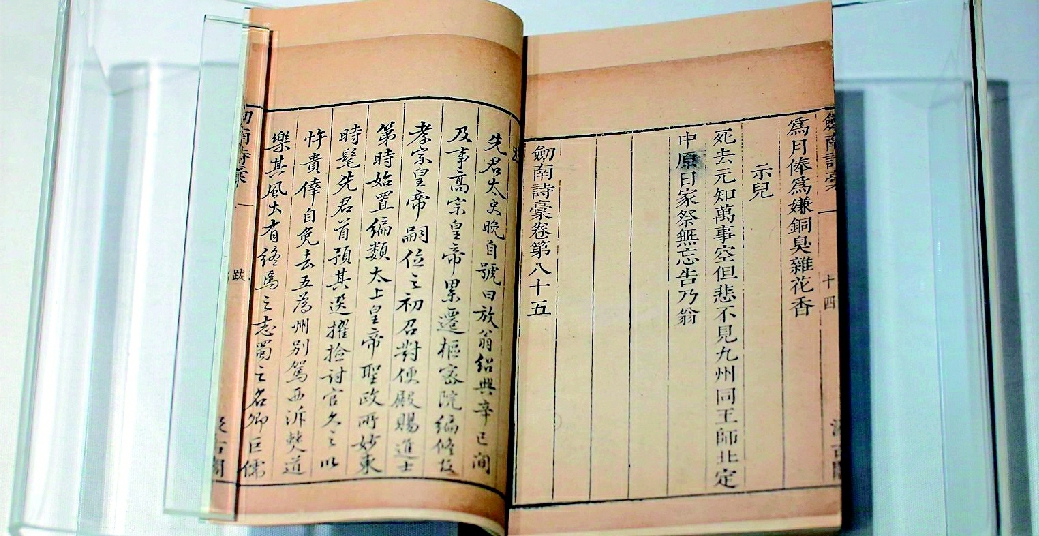 劒南詩稾
十四
爲月俸爲嫌銅臭雜花香
示兒
死去元知萬事空但悲不見九州同王師北定
中原日家祭無忘告乃翁
劒南詩稾卷第八十五
先君太史晚自號曰放翁紹興辛巳間
及事高宗皇帝累遷樞密院編修官
孝宗皇帝嗣位之初召對便殿賜進士
第時始置編類太上皇帝聖政所妙柬
時髦先君首預其選擢撿討官久之以
忤貴倖自免去五爲州別駕西泝僰道
樂其風土有終焉之志蜀之名卿巨儒
跋